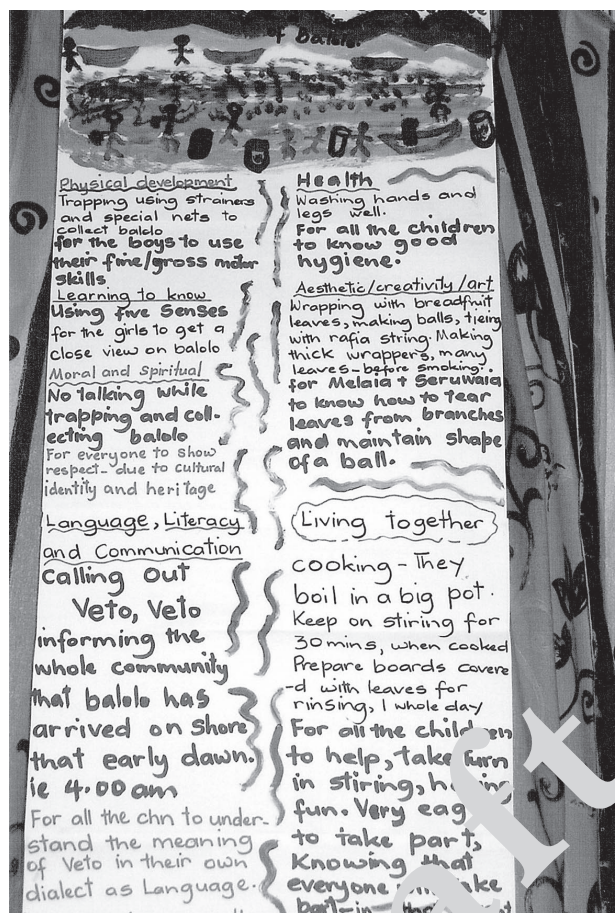 of Balolo.
Physical development
Trapping using strainers
and special nets to
collect balolo
for the boys to use
their fine/gross motor
skills
Learning to know
Using five Senses
for the girls to get a
close view on balolo
Moral and Spiritual
No talking while
trapping and coll-
ecting balolo
For everyone to show
respect- due to cultural
identity and heritage
Language, Literacy
and Communication
Calling Out
Veto, Veto
informing the
whole community
that balolo has
arrived on Shore
that early dawn.
ie 4.00 am
For all the chn to under-
stand the meaning
of Veto in their own
dialect as Language.
Health
Washing hands and
legs well.
For all the children
to know good
hygiene.
Aesthetic/creativity/art
Wrapping with breadfruit
leaves, making balls, tieing
with rafia string. Making
thick wrappers, many
leaves - before smoking..
for Melaia + Seruwaia
to know how to tear
leaves from branches
and maintain shape
of a ball.
Living together
cooking - They
boil in a big pot.
Keep on stiring for
30 mins, when cooked
Prepare boards covere
-d with leaves for
rinsing, 1 whole day
For all the children
to help, take turn
in stiring, having
fun. Very eag
to take part,
Knowing that
everyone
part-in
aft